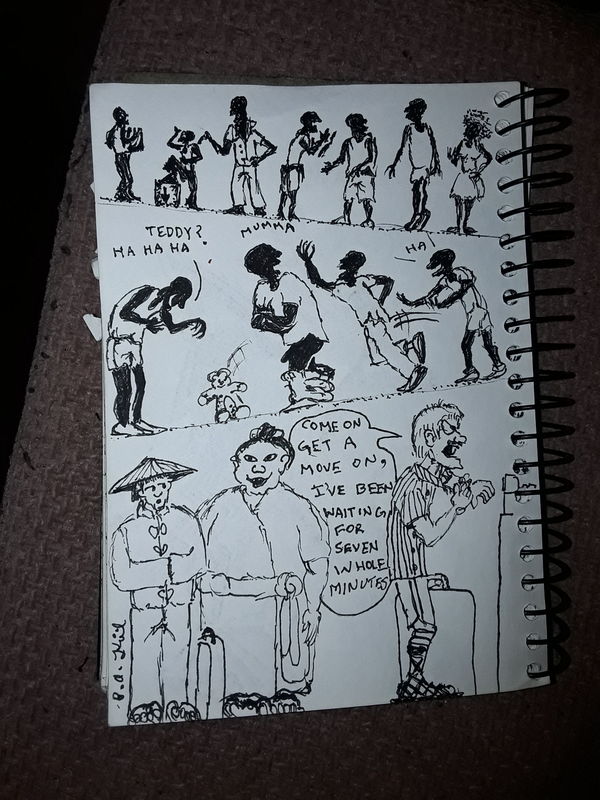 TEDDY?
HA HA HA
MUMMA
HA
COME ON
GET A
MOVE ON,
I'VE BEEN
WAITING
FOR
SEVEN
WHOLE
MINUTES